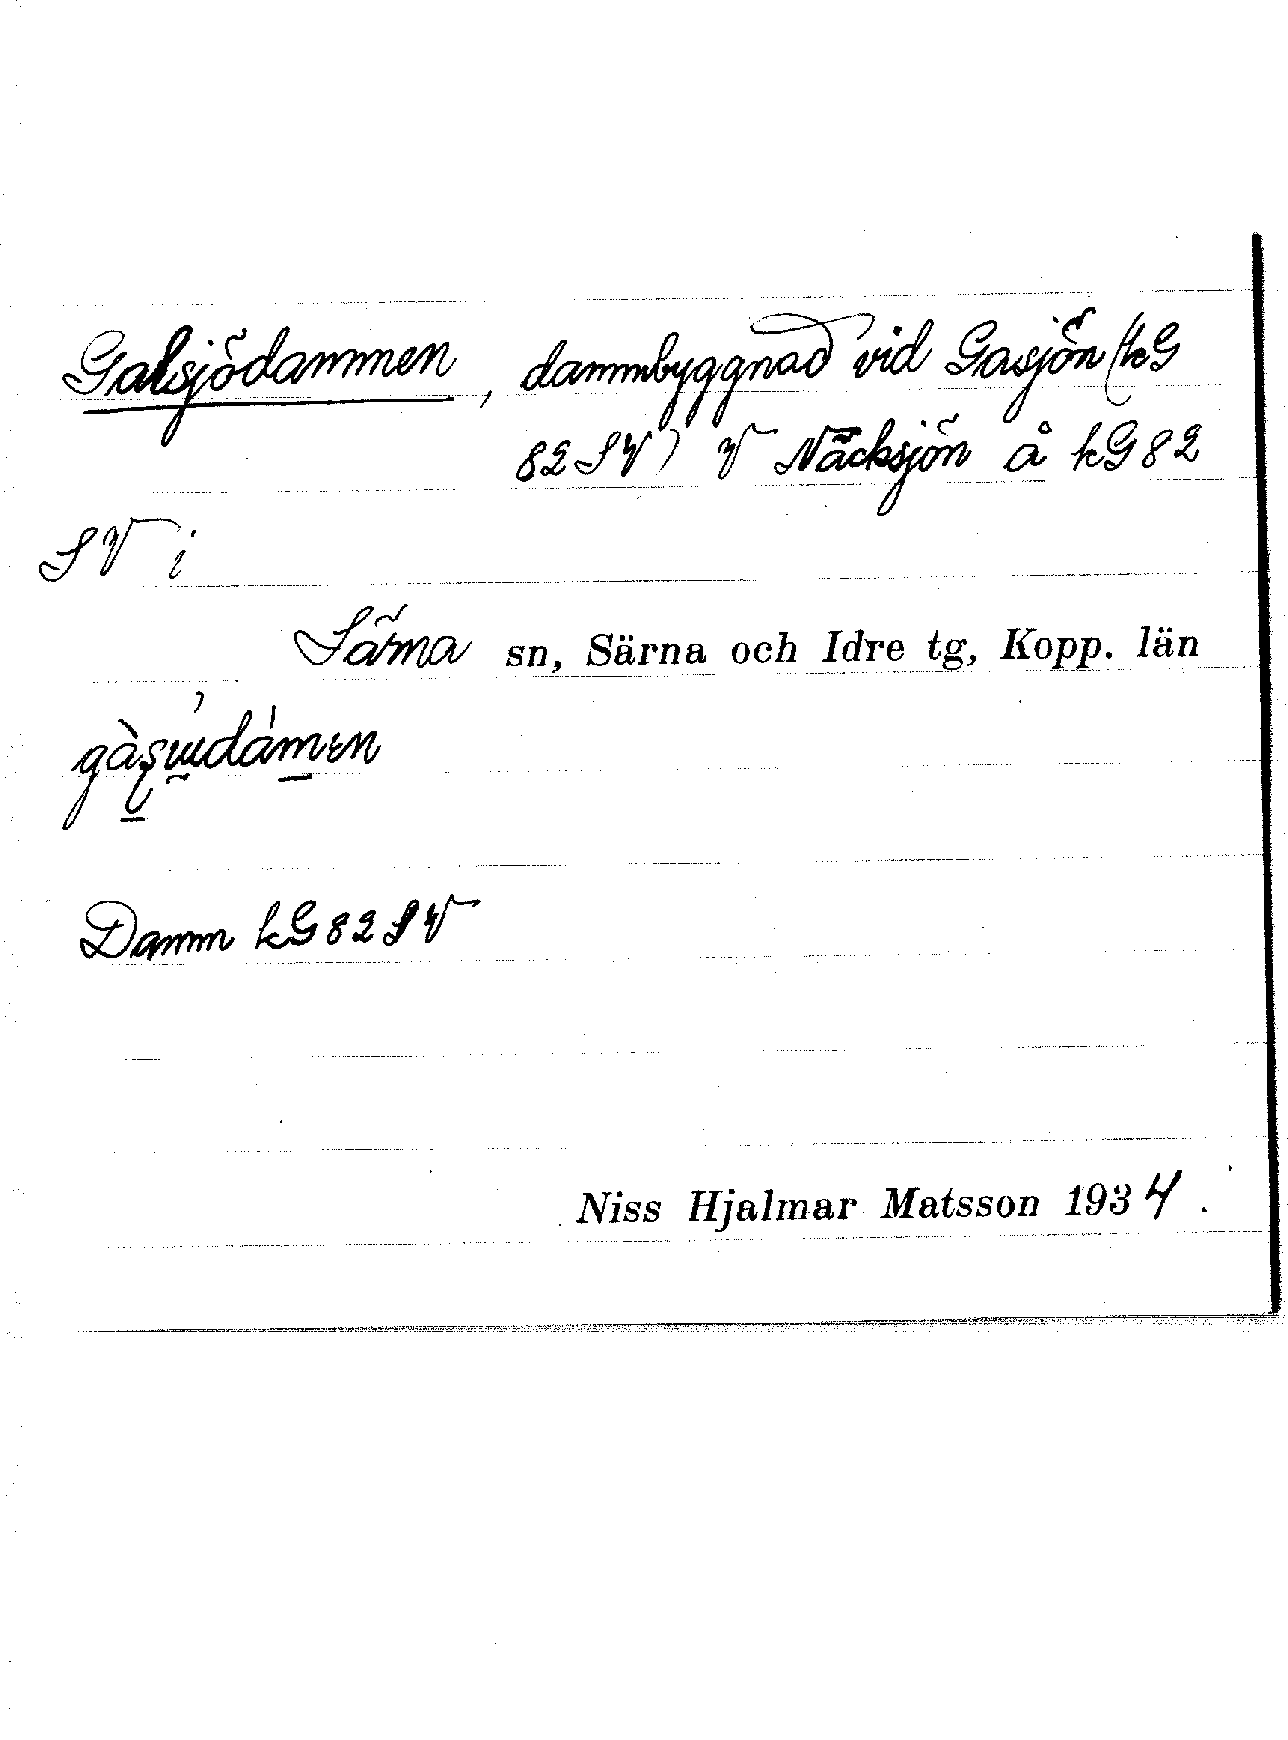 Galsjödammen, dammbyggnad vid Gasjön (kG
82 SV) V Näcksjön å kG 82
SV i
Särna sn, Särna och Idre tg, Kopp. län
Damm kG 82 SV
Niss Hjalmar Matsson 1934.